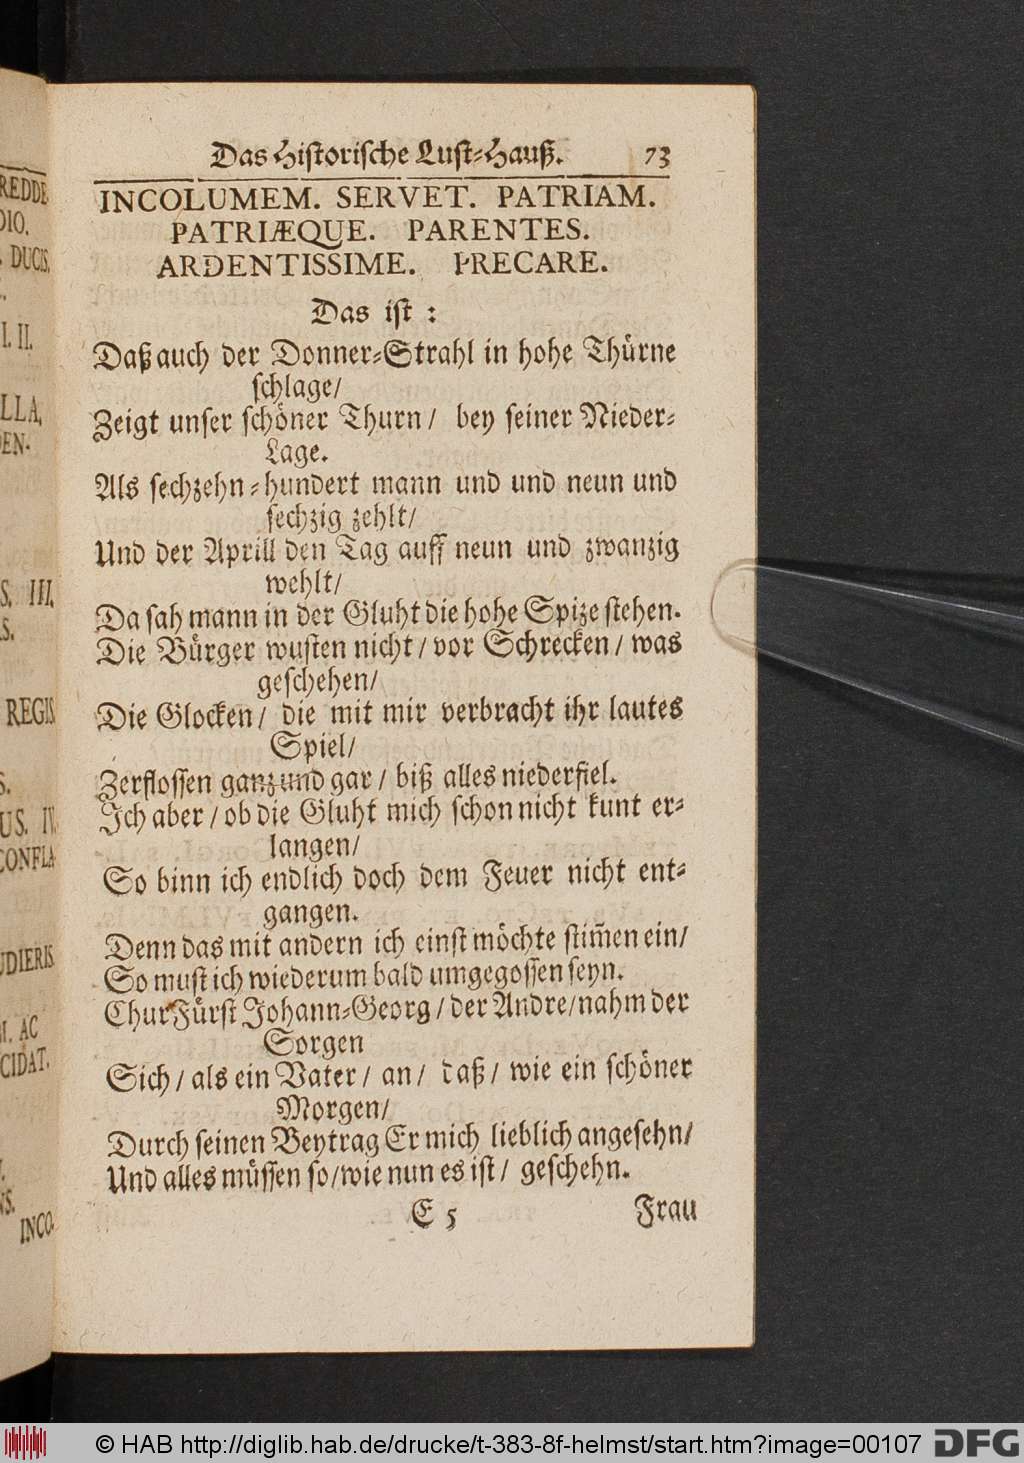 Das Historische Lust-Hauß. 73
INCOLUMEM. SERVET. PATRIAM.
PATRIÆQUE. PARENTES.
ARDENTISSIME. PRECARE.
Das ist :
Daß auch der Donner-Strahl in hohe Thürne
schlage/
Zeigt unser schöner Thurn / bey seiner Nieder-
Lage.
Als sechzehn-hundert mann und und neun und
sechzig zehlt/
Und der Aprill den Tag auff neun und zwanzig
wehlt/
Da sah mann in der Gluht die hohe Spize stehen.
Die Bürger wusten nicht / vor Schrecken / was
geschehen/
Die Glocken / die mit mir verbracht ihr lautes
Spiel/
Zerflossen ganz und gar / biß alles niederfiel.
Ich aber / ob die Gluht mich schon nicht kunt er-
langen/
So binn ich endlich doch dem Feuer nicht ent-
gangen.
Denn das mit andern ich einst möchte stim̃en ein/
So must ich wiederum bald umgegossen seyn.
ChurFürst Johann-Georg / der Andre/nahm der
Sorgen
Sich / als ein Vater / an / daß / wie ein schöner
Morgen/
Durch seinen Beytrag Er mich lieblich angesehn/
Und alles müssen so/wie nun es ist / geschehn.
E 5 Frau
REDDE
DIO.
DUCIS.
I. II.
LLA,
EN-
S. III.
S.
REGIS
S.
US. IV.
CONFLA
UDIERIS
M. AC
CIDAT.
NS.
INCO-
© HAB http://diglib.hab.de/drucke/t-383-8f-helmst/start.htm?image=00107 DFG